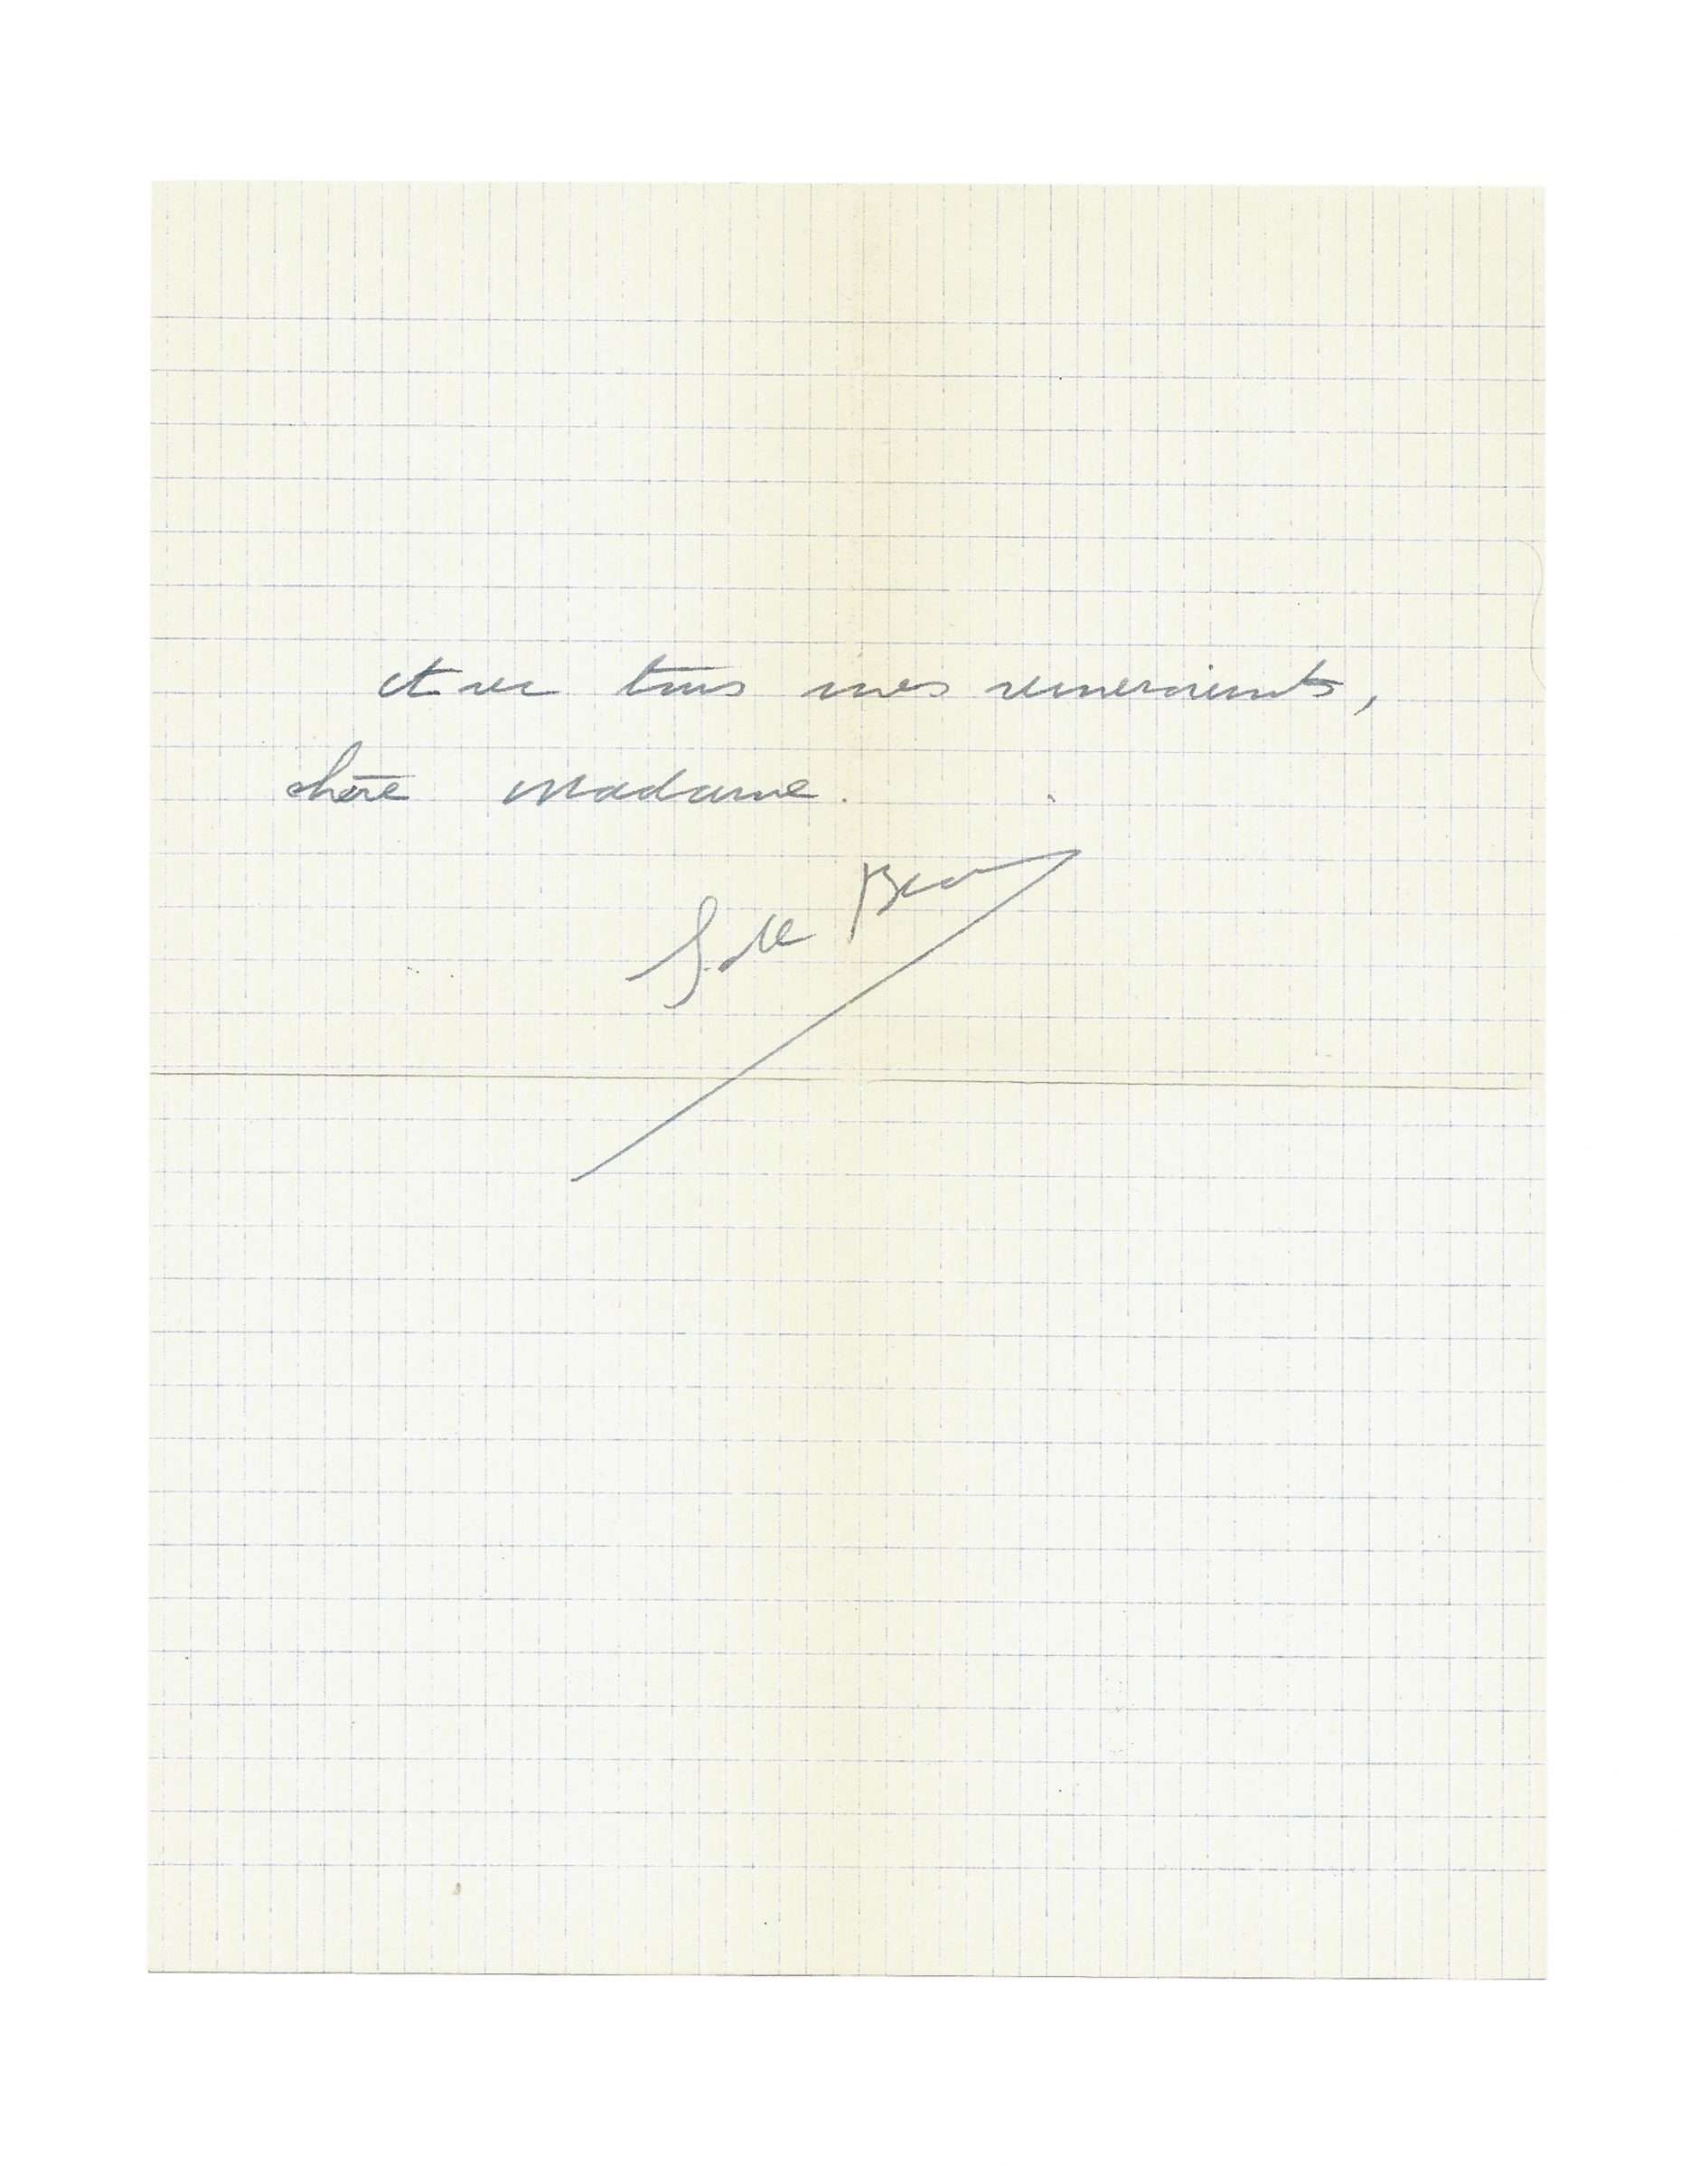 Avec tous mes remerciements,
chère Madame.
S. de Beau